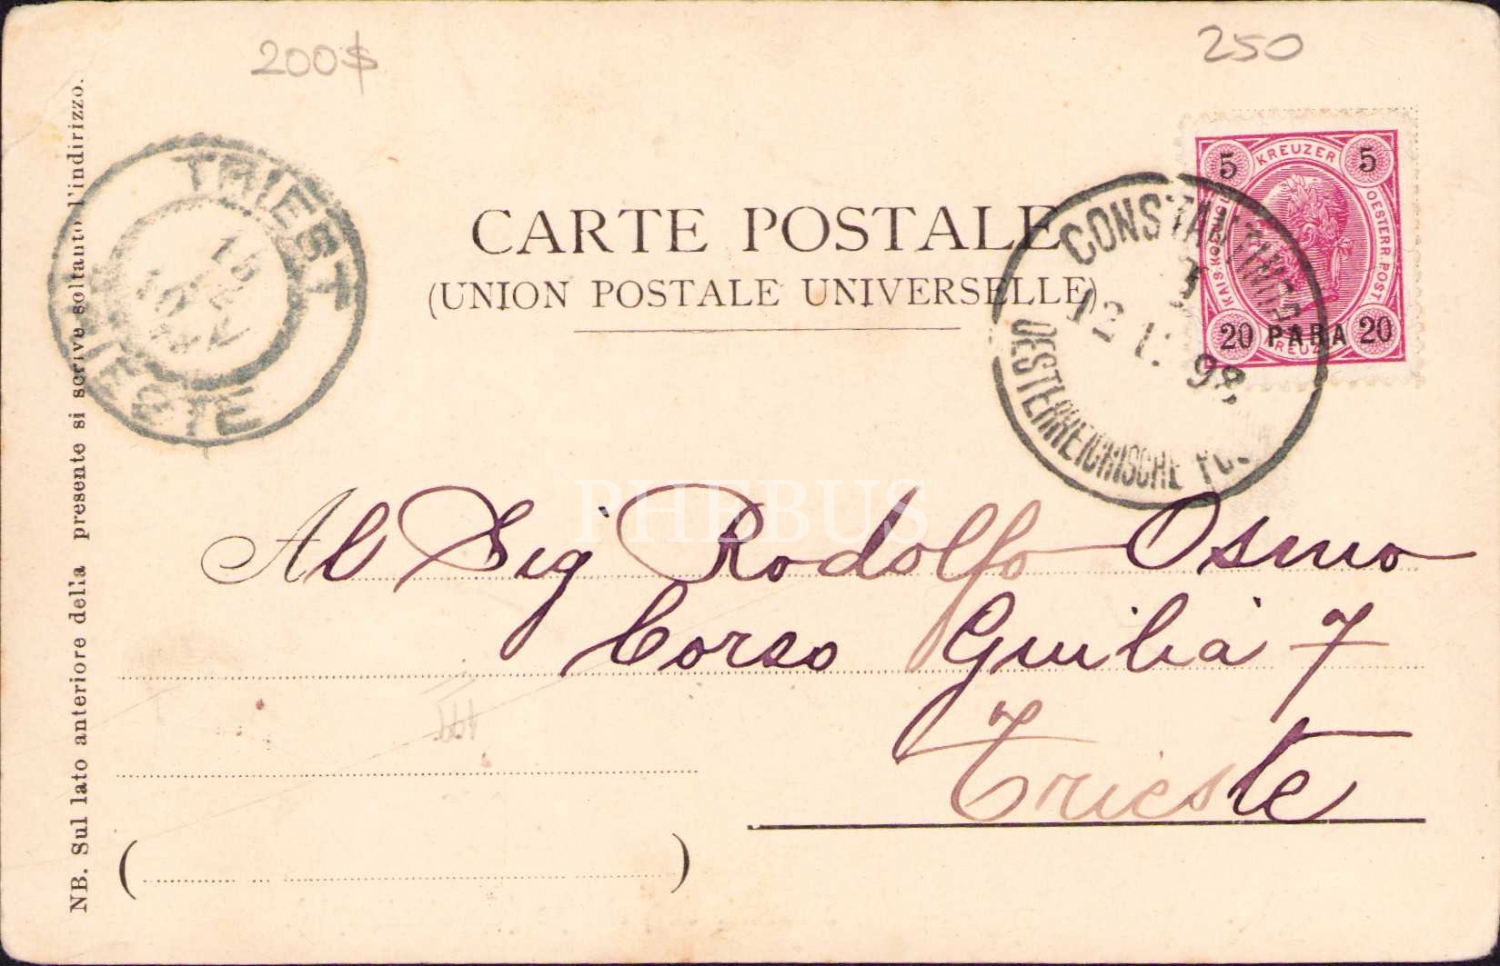 200$
250
TRIEST
TRIESTE
CARTE POSTALE
(UNION POSTALE UNIVERSELLE)
5 KREUZER 5
KAIS. KOENIGL.
OESTERR. POST.
20 PARA 20
KREUZER
CONSTANTINOPEL
12 98
OESTERREICHISCHE POST
PHEBUS
Al Sig Rodolfo Osmo
Corso Giulia 7
Trieste
( )
NB. Sul lato anteriore della presente si scrive soltanto l'indirizzo.